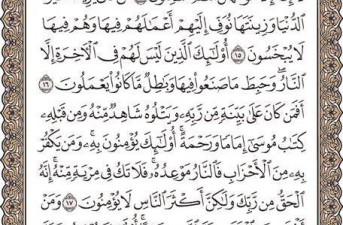 الدُّنْيَا وَزِينَتَهَا نُوَفِّ إِلَيْهِمْ أَعْمَالَهُمْ فِيهَا وَهُمْ فِيهَا
لَا يُبْخَسُونَ ١٥ أُولَٰئِكَ الَّذِينَ لَيْسَ لَهُمْ فِي الْآخِرَةِ إِلَّا
النَّارُ ۖ وَحَبِطَ مَا صَنَعُوا فِيهَا وَبَاطِلٌ مَّا كَانُوا يَعْمَلُونَ ١٦
أَفَمَن كَانَ عَلَىٰ بَيِّنَةٍ مِّن رَّبِّهِ وَيَتْلُوهُ شَاهِدٌ مِّنْهُ وَمِن قَبْلِهِ
كِتَابُ مُوسَىٰ إِمَامًا وَرَحْمَةً ۚ أُولَٰئِكَ يُؤْمِنُونَ بِهِ ۚ وَمَن يَكْفُرْ
بِهِ مِنَ الْأَحْزَابِ فَالنَّارُ مَوْعِدُهُ ۚ فَلَا تَكُ فِي مِرْيَةٍ مِّنْهُ ۚ إِنَّهُ
الْحَقُّ مِن رَّبِّكَ وَلَٰكِنَّ أَكْثَرَ النَّاسِ لَا يُؤْمِنُونَ ١٧ وَمَنْ